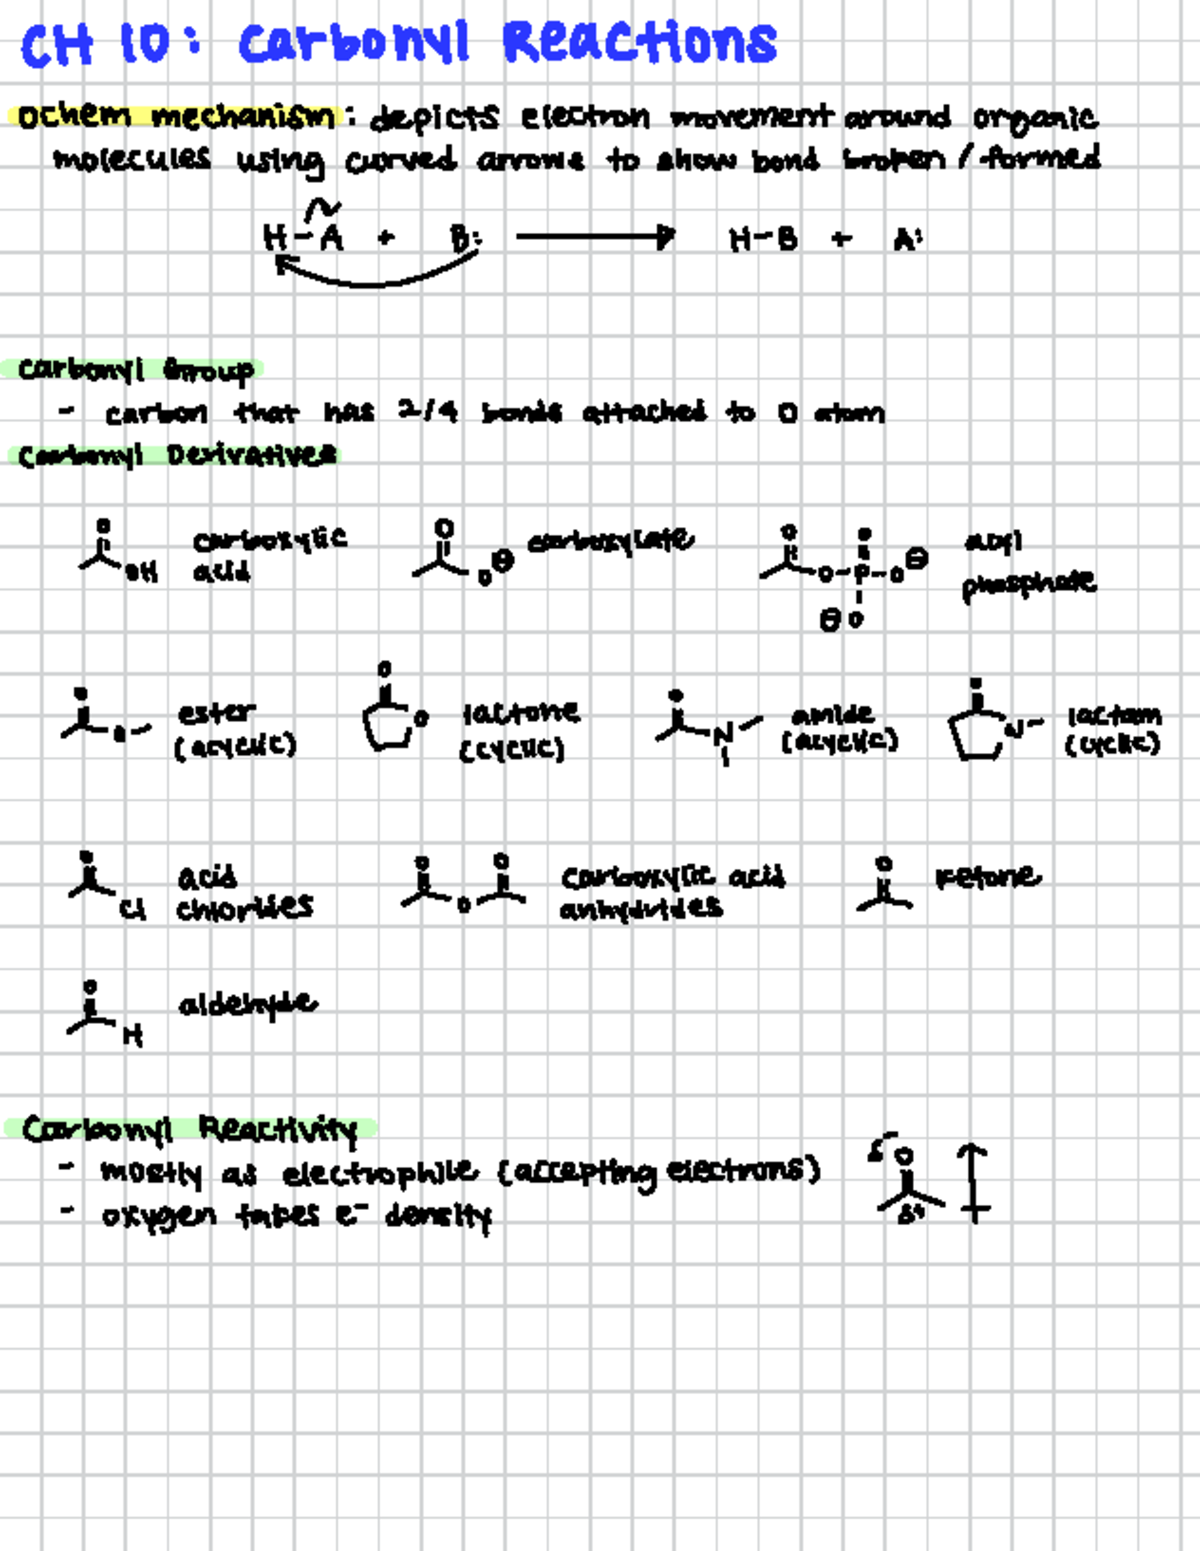 CH 10: Carbonyl Reactions
Ochem mechanism: depicts electron movement around organic
molecules using curved arrows to show bond broken / formed
H-A + B: H-B + A:
Carbonyl Group
- carbon that has 2/4 bonds attached to O atom
Carbonyl Derivatives
O OH carboxylic acid
O O⊖ carboxylate
O O-P-O⊖ O ⊖O acyl phosphate
O O ester (acyclic)
O O lactone (cyclic)
O N amide (acyclic)
O N lactam (cyclic)
O Cl acid chlorides
O O O carboxylic acid anhydrides
O ketone
O H aldehyde
Carbonyl Reactivity
- mostly as electrophile (accepting electrons)
- oxygen takes e⁻ density
δ⁻ O
δ+